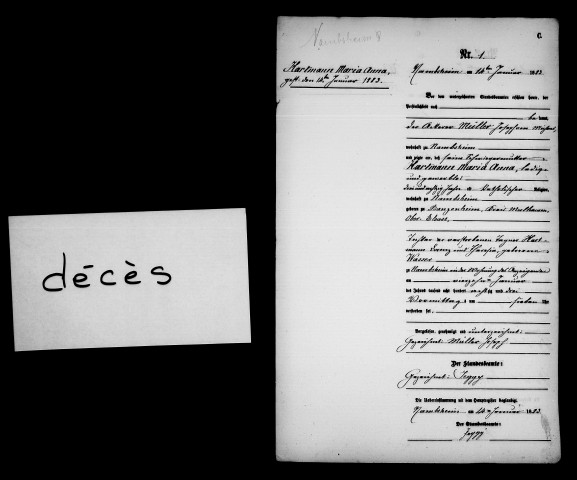 décès
Nambsheim 8
C.
Nr. 1.
Hartmann Maria Anna,
gest. den 14ten Januar 1883.
Nambsheim am 14ten Januar 1883.
Vor dem unterzeichneten Standesbeamten erschien heute, der
Persönlichkeit nach
be kannt,
der Ackerer Müller Joseph
wohnhaft zu Nambsheim
und zeigte an, daß seine Schwiegermutter
Hartmann Maria Anna, ledig
und gewerblos
Jahre alt, katholischer Religion,
wohnhaft zu Nambsheim
geboren zu Banzenheim, Kreis Mülhausen,
Ober Elsass,
Tochter der verstorbenen Tagner Hart-
mann und Theresia, geborenen
Wasser
zu Nambsheim in der Wohnung des Anzeigenden
am vierzehnten Januar
des Jahres tausend acht hundert achtzig und drei
Vormittags um sieben Uhr
verstorben sei.
Vorgelesen, genehmigt und unterzeichnet:
Gezeichnet: Müller Joseph
Der Standesbeamte:
Gezeichnet:
Die Uebereinstimmung mit dem Hauptregister beglaubigt.
Nambsheim am 14 Januar 1883.
Der Standesbeamte: